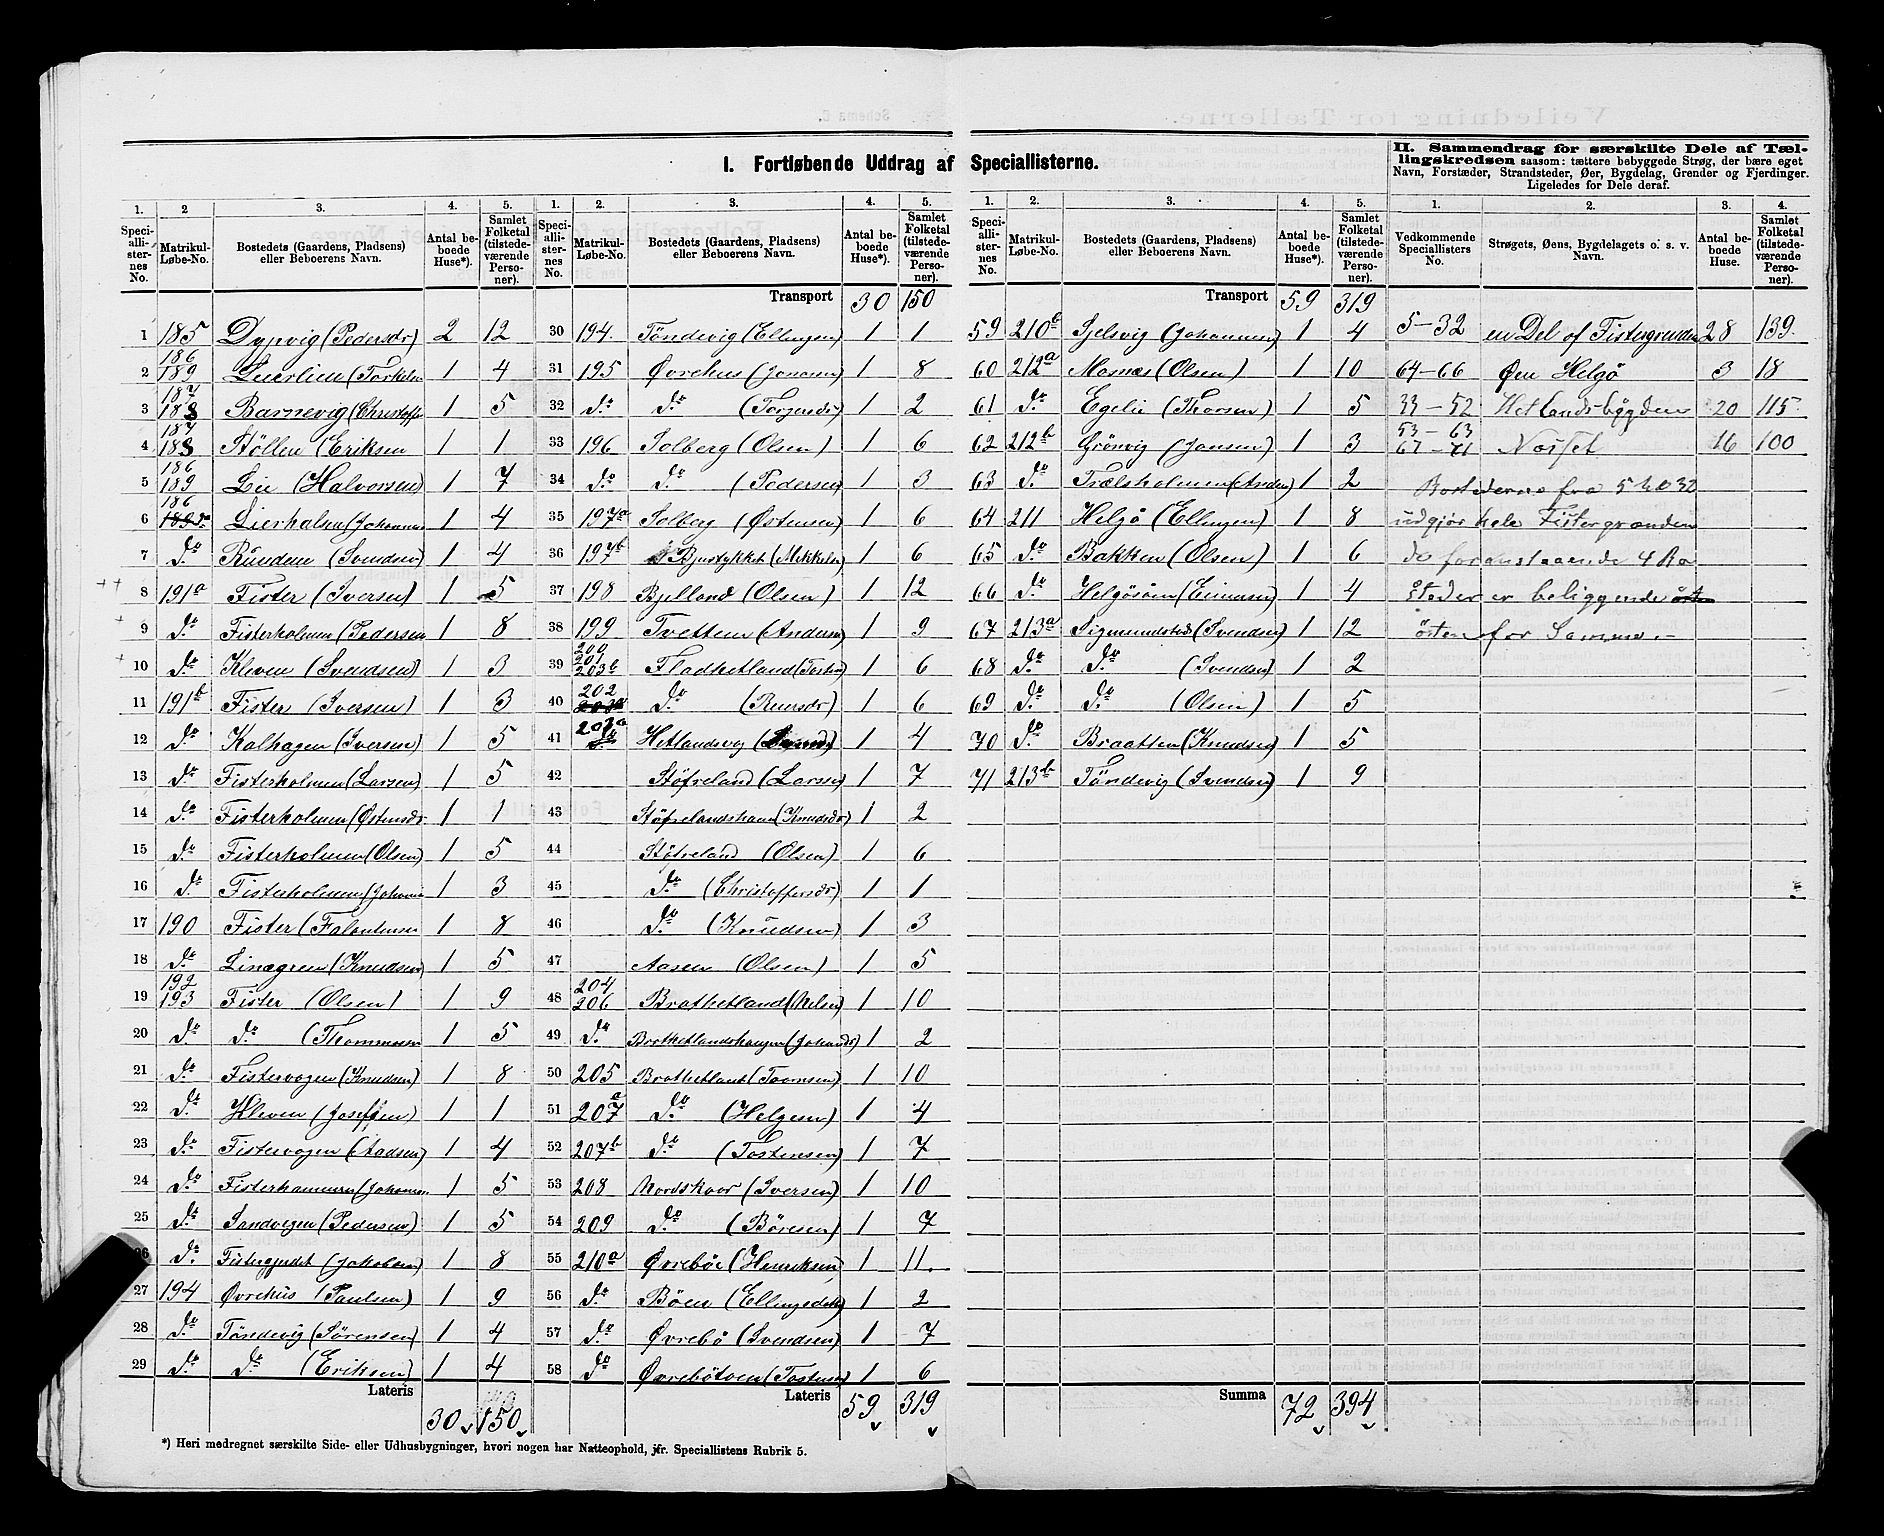 I. Fortløbende Uddrag af Speciallisterne.
II. Sammendrag for særskilte Dele af Tællingskredsen saasom: tættere bebyggede Strøg, der bære eget
Navn, Forstæder, Strandsteder, Øer, Bygdelag, Grender og Fjerdinger.
Ligeledes for Dele deraf.
1. 2 3. 4. 5.
Speciallisternes No. Matrikul-Løbe-No. Bostedets (Gaardens, Pladsens) eller Beboerens Navn. Antal beboede Huse*). Samlet Folketal (tilstedeværende Personer).
1 185 Dypvig (Pedersdr) 2 12
2 186 189 Lierlien (Torkels 1 4
3 187 188 Barnevig (Christoff 1 5
4 187 188 Støllen (Eriksen 1 1
5 186 189 Lie (Halvorsen) 1 7
6 186 Lierholen (Johannes 1 4
7 do Runden (Svendsen) 1 4
8 191a Fister (Iversen) 1 5
9 do Fisterholmen (Pedersen 1 8
10 do Kleven (Svendsen) 1 3
11 191b Fister (Iversen) 1 3
12 do Kalhagen (Iversen) 1 5
13 do Fisterholmen (Larsen) 1 5
14 do Fisterholmen (Østensdr. 1 1
15 do Fisterholmen (Olsen) 1 5
16 do Fisterholmen (Johanne 1 3
17 190 Fister (Falentinsen 1 8
18 do Linægren (Knudsen) 1 5
19 192 193 Fister (Olsen) 1 9
20 do do (Thommesen 1 5
21 do Fistervogen (Knudsen) 1 8
22 do Kleven (Josefsen) 1 1
23 do Fistervogen (Aadsen) 1 4
24 do Fisterhammeren (Johannes. 1 5
25 do Sandvigen (Pedersen) 1 5
26 do Fistergjerdet (Jakobsen) 1 8
27 194 Øvrehus (Paulsen) 1 9
28 do Tøndevig (Sørensen) 1 4
29 do do (Eriksen) 1 4
Lateris 30 150
1. 2. 3. 4. 5.
Speciallisternes No. Matrikul-Løbe-No. Bostedets (Gaardens, Pladsens) eller Beboerens Navn. Antal beboede Huse*). Samlet Folketal (tilstedeværende Personer).
Transport 30 150
30 194. Tøndevig (Ellingsen) 1 1
31 195 Øvrehus (Jonasen) 1 8
32 do do (Torgersdr) 1 2
33 196 Solberg (Olsen) 1 6
34 do do (Pedersen) 1 3
35 197a Solberg (Østensen) 1 6
36 197b Bjustykket (Mikkels) 1 6
37 198 Bjelland (Olsen) 1 12
38 199 Tveiten (Anders) 1 9
39 200 201 203b Fladhetland (Tosten) 1 6
40 202 do (Reiersdr) 1 6
41 207a Hetlandsvig 1 4
42 Støfreland (Larsen) 1 7
43 Støfrelandshaen (Knudsdr) 1 2
44 Støfreland (Olsen) 1 6
45 do (Christoffersdr) 1 1
46 do (Knudsen) 1 3
47 Aasen (Olsen) 1 5
48 204 206 Brathetland (Nelsen) 1 10
49 do Brathetlandshaugen (Johansdr) 1 2
50 205 Brathetland (Toomsen) 1 10
51 207a do (Helgesen) 1 4
52 207b do (Tostensen) 1 7
53 208 Nordskaar (Iversen) 1 10
54 209 do (Børesen) 1 7
55 210a Øvrebøe (Henriksen) 1 11.
56 do Bøen (Ellingsdtr) 1 2
57 do Øvrebø (Svendsen) 1 7
58 do Øvrebøtoen (Tostens) 1 6
Lateris 59 319
1. 2. 3. 4. 5.
Speciallisternes No. Matrikul-Løbe-No. Bostedets (Gaardens, Pladsens) eller Beboerens Navn. Antal beboede Huse*). Samlet Folketal (tilstedeværende Personer).
Transport 59 319
59 210b Sjelsvig (Johannesen) 1 4
60 212a Mosnes (Olsen) 1 10
61 do Egelie (Thorsen) 1 5
62 212b Grønvig (Jonsen) 1 3
63 do Trælsholmen (Anders) 1 2
64 211 Helgø (Ellingsen) 1 8
65 do Bakken (Olsen) 1 6
66 do Helgøsøen (Einersen) 1 4
67 213a Sigmundstad (Svendsen) 1 12
68 do do (Svendsen) 1 2
69 do do (Olsen) 1 5
70 do Braatten (Knudsen) 1 5
71 213b Tøndevig (Svendsen) 1 9
Summa 72 394
1. 2. 3. 4.
Vedkommende Speciallisters No. Strøgets, Øens, Bygdelagets o. s. v. Navn. Antal beboede Huse. Samlet Folketal (tilstedeværende Personer).
5-32 en Del af Fistergrenden 28 139.
64-66 Øen Helgø 3 18
33-52 Hetlandsbygden 20 115.
53-63 67-71 Næsset 16 100
Bostederne fra 5 til 32
udgjør hele Fistergrænden
de foranstaaende 4 Bo
steder er beliggende
østenfor Samme.-
*) Heri medregnet særskilte Side- eller Udhusbygninger, hvori nogen har Natteophold, jfr. Speciallistens Rubrik 5.